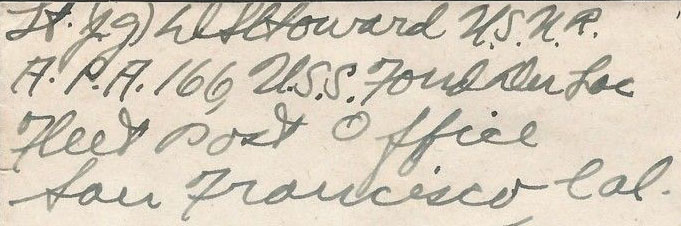 Lt. (jg) W. S. Howard U.S.N.R.
A.P.A. 166, U.S.S. Fond Du Lac
Fleet Post Office
San Francisco, Cal.